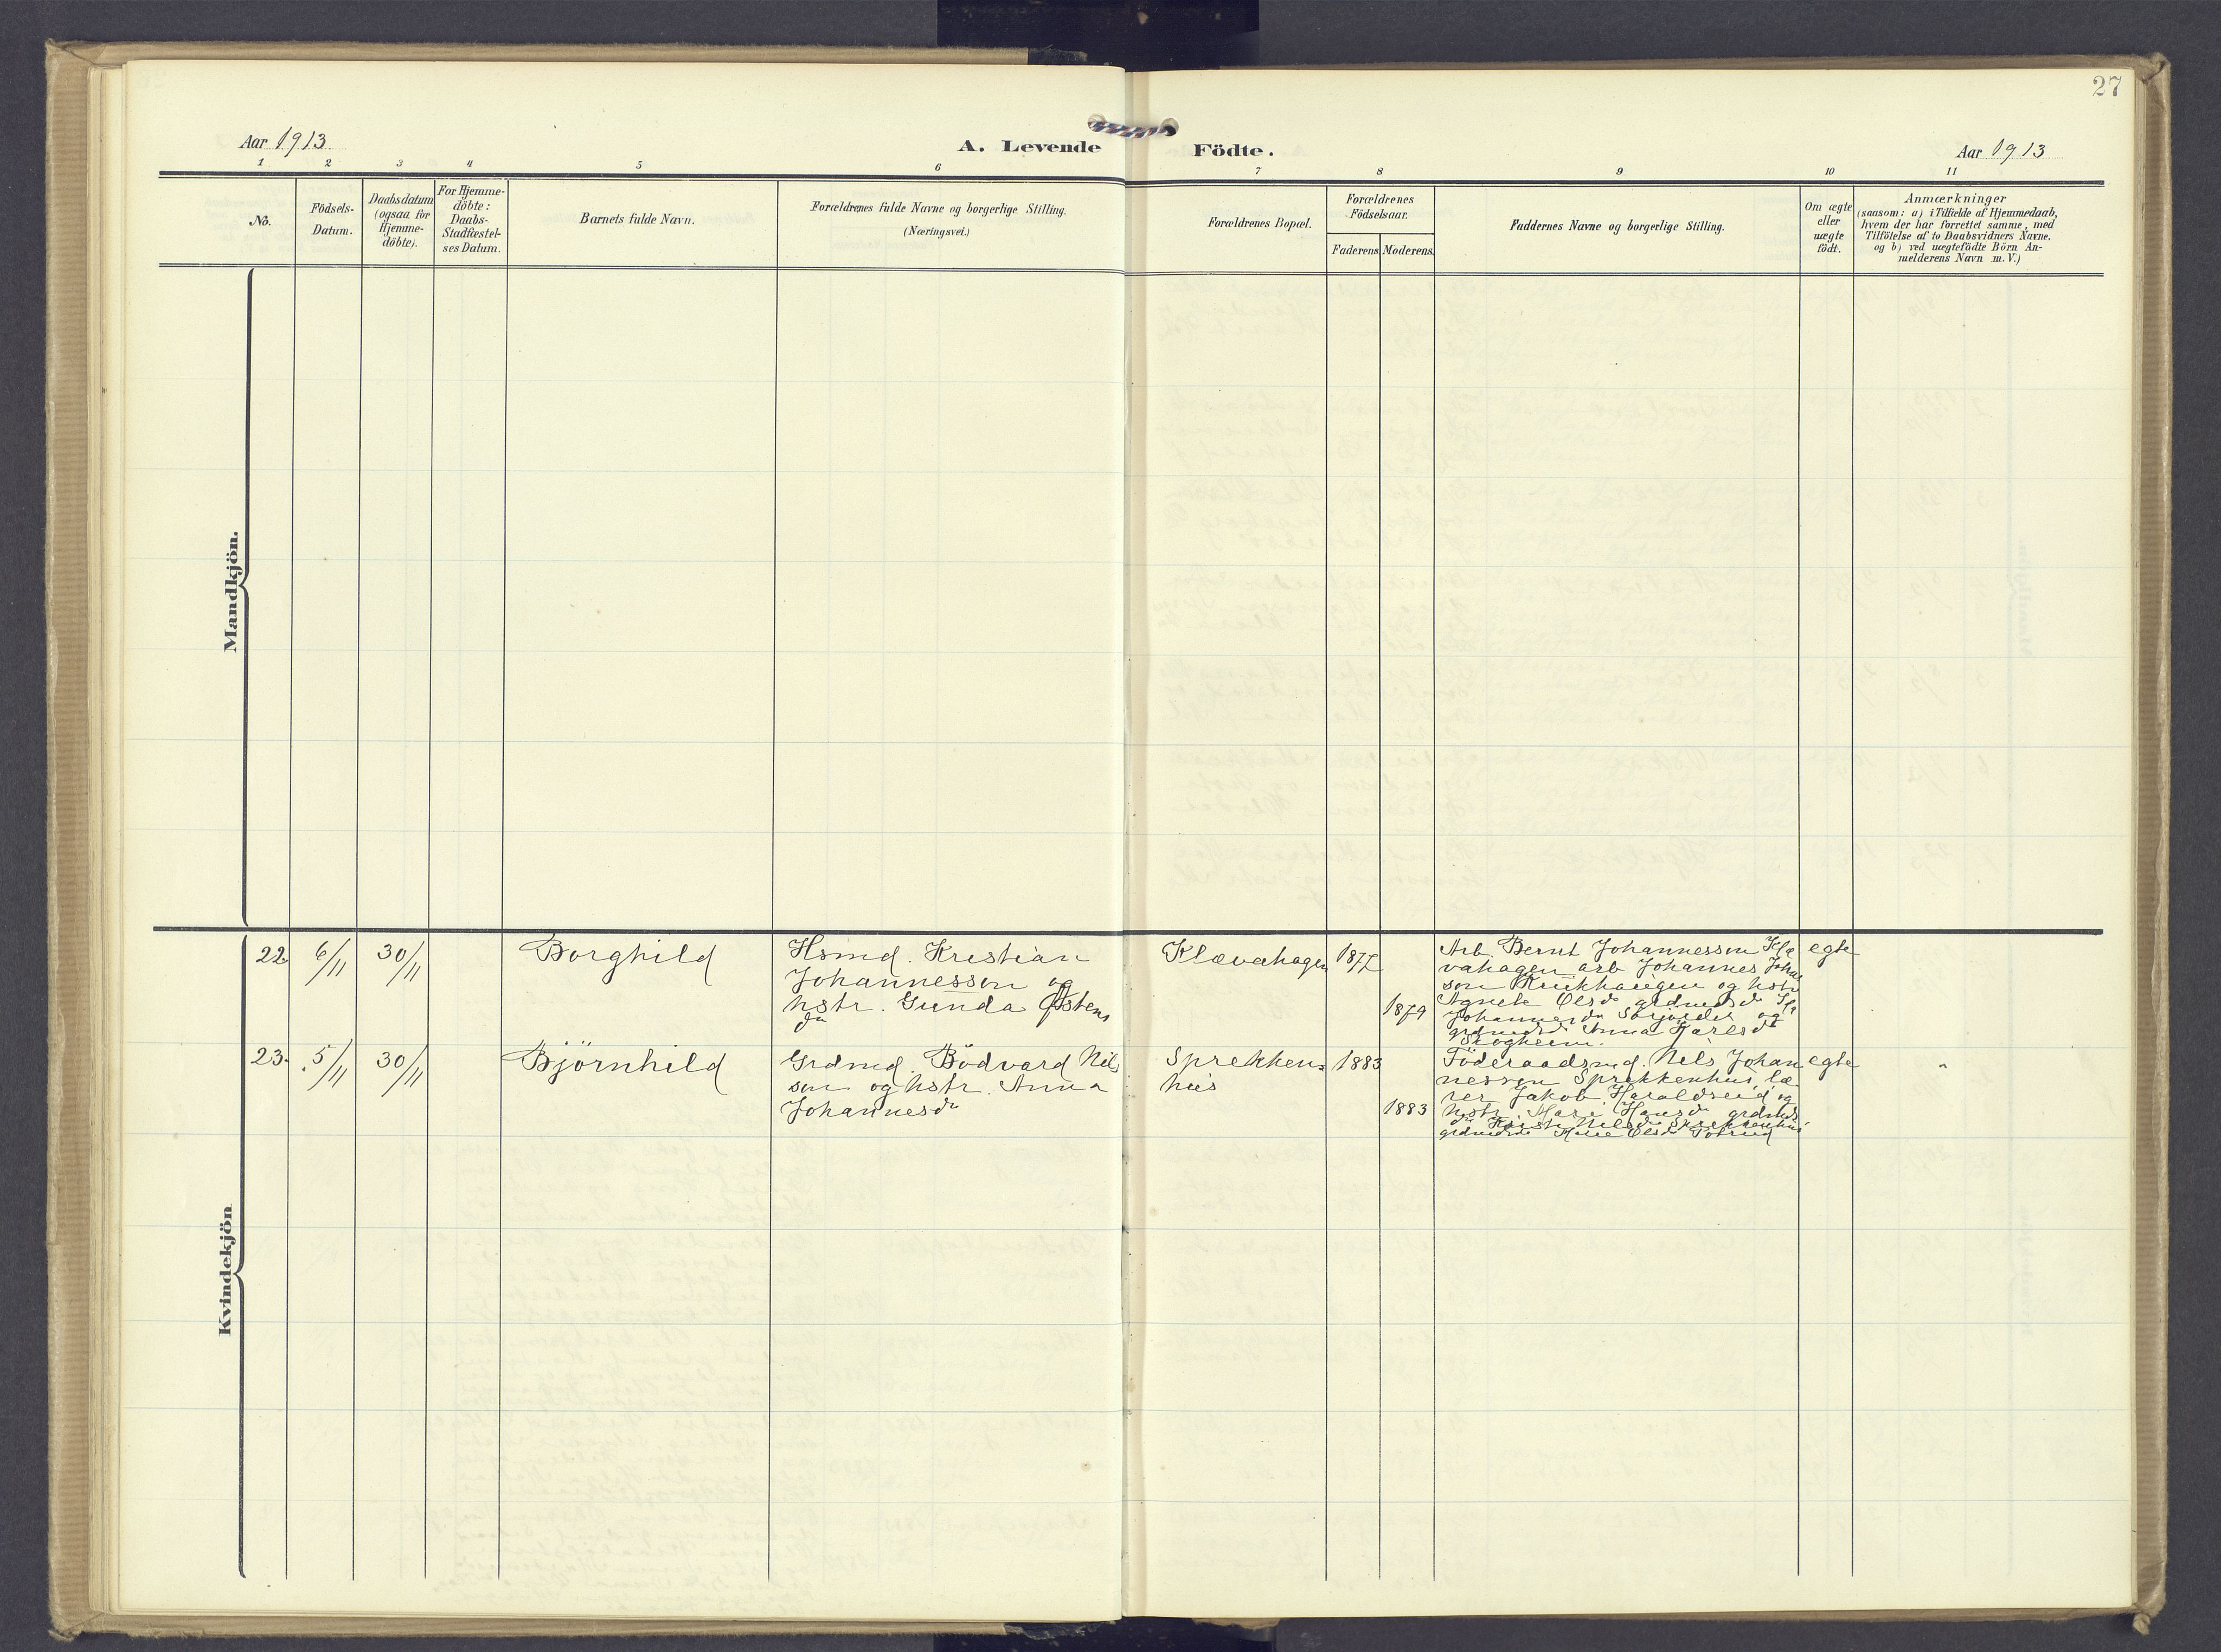 27
Aar 1913
A. Levende Födte.
Aar 1913
1 2 3 4 5 6 7 8 9 10 11
No.
Födsels-
Datum.
Daabsdatum
(ogsaa for
Hjemme-
döbte).
For Hjemme-
döbte:
Daabs-
Stadfæstel-
ses Datum.
Barnets fulde Navn.
Forældrenes fulde Navne og borgerlige Stilling.
(Næringsvei.)
Forældrenes Bopæl.
Forældrenes
Födselsaar.
Faderens.
Moderens.
Faddernes Navne og borgerlige Stilling.
Om ægte
eller
uægte
födt.
Anmærkninger
(saasom: a) i Tilfælde af Hjemmedaab,
hvem der har forrettet samme, med
Tilföielse af to Daabsvidners Navne.
og b) ved uægtefödte Börn An-
melderens Navn m. V.)
Mandkjön.
Kvindekjön
22
6/11
30/11
Borghild
Hsmd. Kristian
Johannessen og
hstr. Gunda Østens
da
Klævahagen
1877
1879
Arb. Bernt Johannessen Klæ
vahagen arb Johannes Johan
sen og hstr
Agnete Olsda grdmdsda
Johannesda og
grdmdsda Anna Karlsda
Skogheim.
egte
23.
5/11
30/11
Björnhild
Grdmd. Bödvard Nils
sen og hstr. Anna
Johannesda
Sprekken
hus
1883
1883
Föderaadsmd. Nils Johan
nessen Sprekkenhus, læ
rer Jakob Haraldseid og
hstr. Mari Hansda grdmds
da Kristi Nilsda Sprekkenhus
grdmdsda Olsda
egte
"